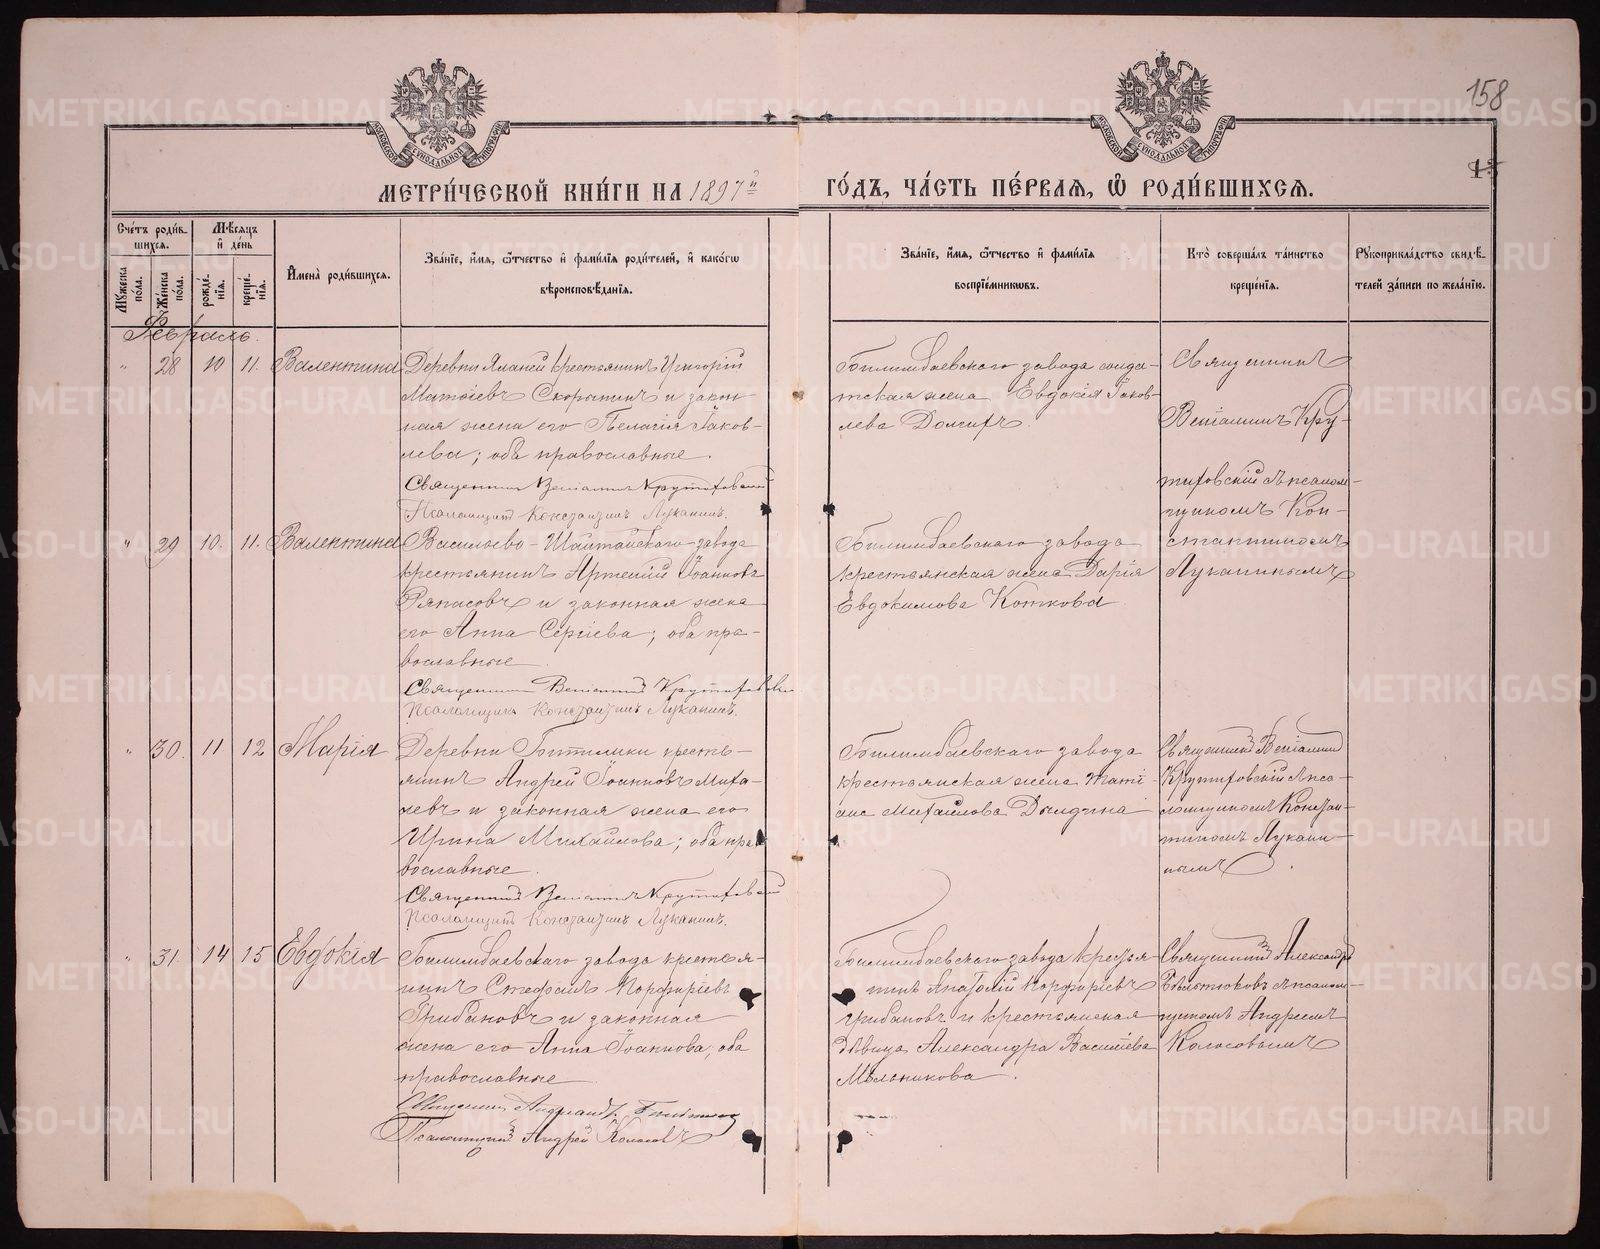 158
МОСКОВСКОЙ СѴНОДАЛЬНОЙ ТИПОГРАФІИ
МОСКОВСКОЙ СѴНОДАЛЬНОЙ ТИПОГРАФІИ
МЕТРИ́ЧЕСКОЙ КНИ́ГИ НА 1897й ГО́ДЪ, ЧА́СТЬ ПЕ́РВАЯ, Ѽ РОДИ́ВШИХСЯ.
Сче́тъ роди́в-
шихся.
Мѣ́сяцъ
и҆ де́нь
Мꙋ́жеска
по́ла.
Же́нска
по́ла.
рожде́-
нїѧ.
креще́-
нїѧ.
И҆мена̀ роди́вшихся.
Зва́нїе, и҆́мя, ѻ҆́тчество и҆ фами́лїя роди́телей, и҆ како́гѡ
вѣроисповѣ́данїя.
Зва́нїе, и҆́мя, ѻ҆́тчество и҆ фами́лїя
воспрїе́мниковъ.
Кто̀ соверша́лъ та́инство
креще́нїя.
Рꙋкоприкла́дство свидѣ́-
телей за́писи по жела́нїю.
Февраль.
" 28 10 11. Валентина
Деревни Яланей крестьянинъ Григорій
Матѳіевъ Скорынинъ и закон
ная жена его Пелагія Іаков-
лева; оба православные.
Священникъ Веніаминъ Крутиховскій
Псаломщикъ Константинъ Луканинъ.
Билимбаевскаго завода солда-
тская жена Евдокія Іаков-
лева Долгихъ
Священникъ
Веніаминъ Кру-
тиховскій съ псалом-
щикомъ Кон-
стантиномъ
Луканинымъ
" 29 10. 11. Валентина
Васильево-Шайтанскаго завода
крестьянинъ Артемій Іоанновъ
Ряпасовъ и законная жена
его Анна Сергіева; оба пра-
вославные
Священникъ Веніаминъ Крутиховскій
Псаломщикъ Константинъ Луканинъ.
Билимбаевскаго завода
крестьянская жена Дарія
Евдокимова Коткова
" 30. 11 12 Марія
Деревни Битимки кресть-
янинъ Андрей Іоанновъ Миха-
левъ и законная жена его
Ирина Михайлова; оба пра
вославные.
Священникъ Веніаминъ Крутиховскій
Псаломщикъ Константинъ Луканинъ.
Билимбаевскаго завода
крестьянская жена Таті
ана Михайлова Дылдина
Священникъ Веніаминъ
Крутиховскій съ пса-
ломщикомъ Констан-
тиномъ Лукани-
нымъ.
" 31. 14 15 Евдокія
Билимбаевскаго завода крестья-
нинъ Стефанъ Порфиріевъ
Грибановъ и законная
жена его Анна Іоаннова, оба
православные
Священникъ
Псаломщикъ Андрей Колосовъ
Билимбаевскаго завода крестья
нинъ Анатолій Порфиріевъ
Грибановъ и крестьянская
дѣвица Александра Васильева
Мѣльникова.
Священникъ Александръ
съ псалом-
щикомъ Андреемъ
Колосовымъ
METRIKI.GASO-URAL.RU